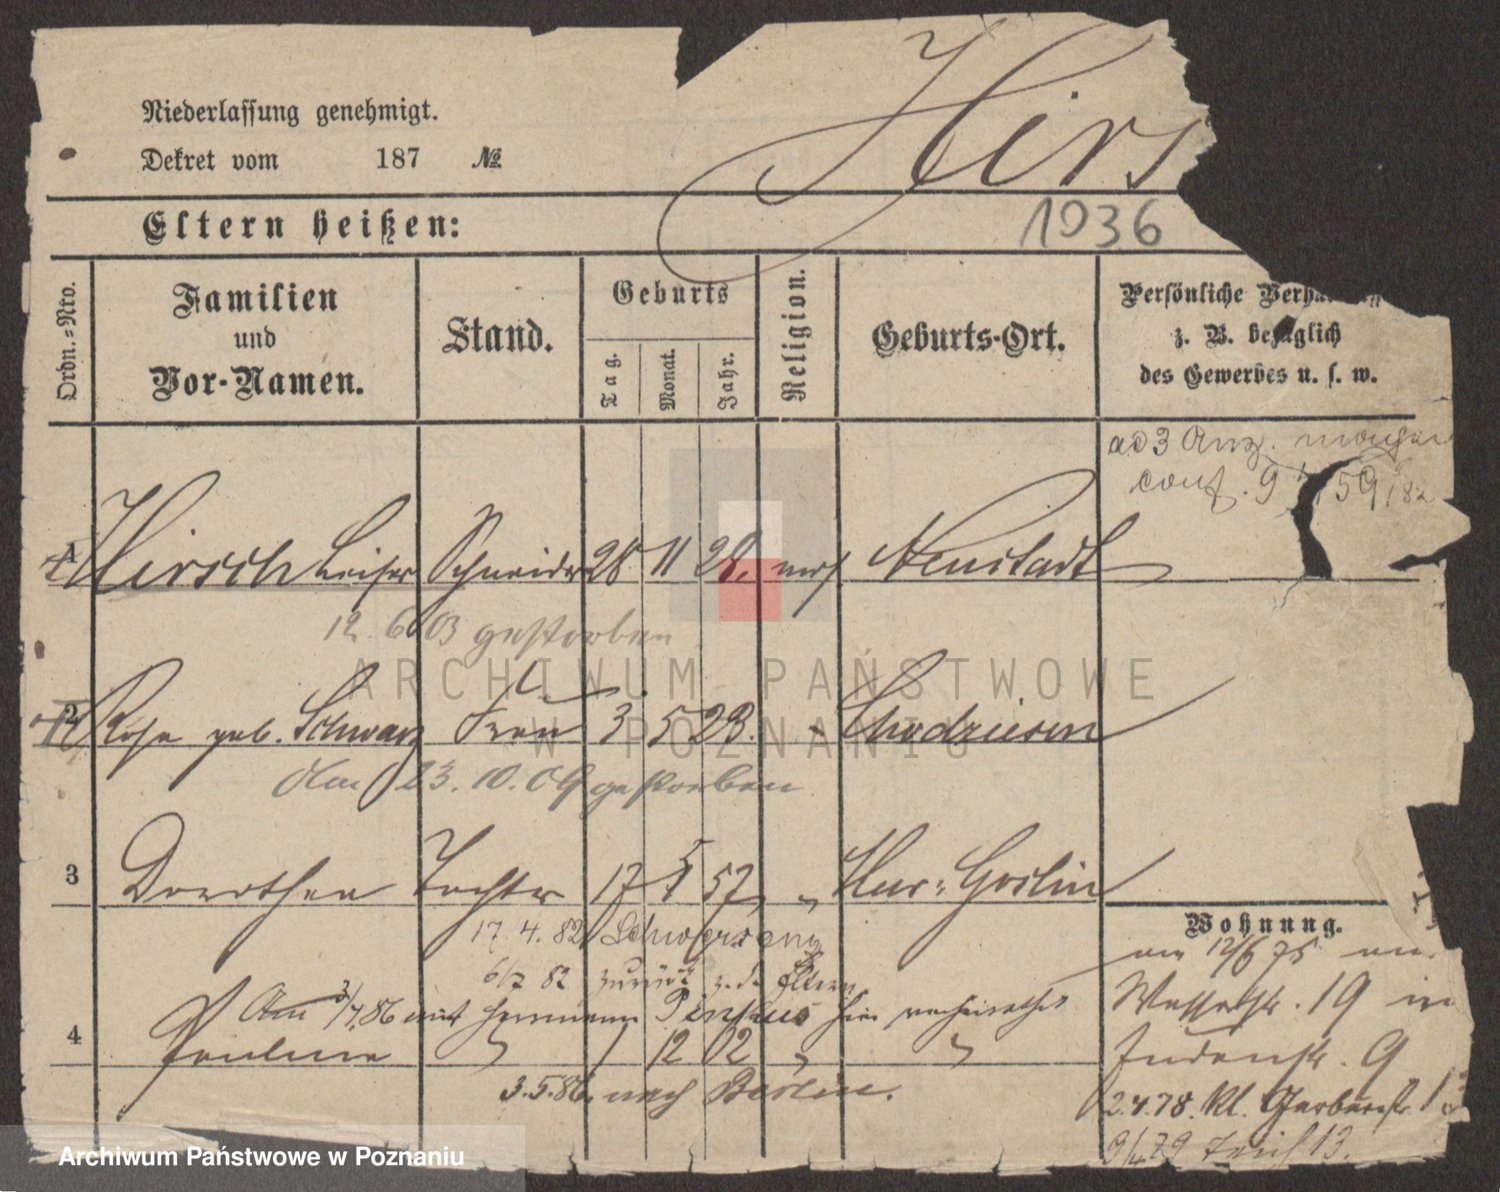 Niederlassung genehmigt.
Dekret vom 187 №
Hirs
Eltern heißen:
1936
Ordn.=Nro.
Familien
und
Vor-Namen.
Stand.
Geburts
Tag.
Monat.
Jahr.
Religion.
Geburts-Ort.
Persönliche
z. B. bezüglich
des Gewerbes u. s. w.
ad 3 Anz.
conf. 9 59/82
1 Hirsch Leiser Schneider 28 11 28. mos Neustadt
12. 6 03 gestorben
2 Rosa geb. Schwarz Frau 3 5 23. " Chodziesen
Am 23. 10. 09 gestorben
3 Dorothea Tochter 17 5 57 " Mur: Goslin
17. 4. 82 Schwersenz
6/7 82 zurück z. d. Eltern
Am 3/4.86 mit Herrmann Pinkus hier verheirathet
4 Pauline " 1 12 62 " "
3.5.86. nach Berlin.
Wohnung.
am 12/6 75
Wasserstr. 19 in
Judenstr. 9
2.4.78. Kl. Gerberstr.
9/4 79 13.
ARCHIWUM PAŃSTWOWE
W POZNANIU
Archiwum Państwowe w Poznaniu